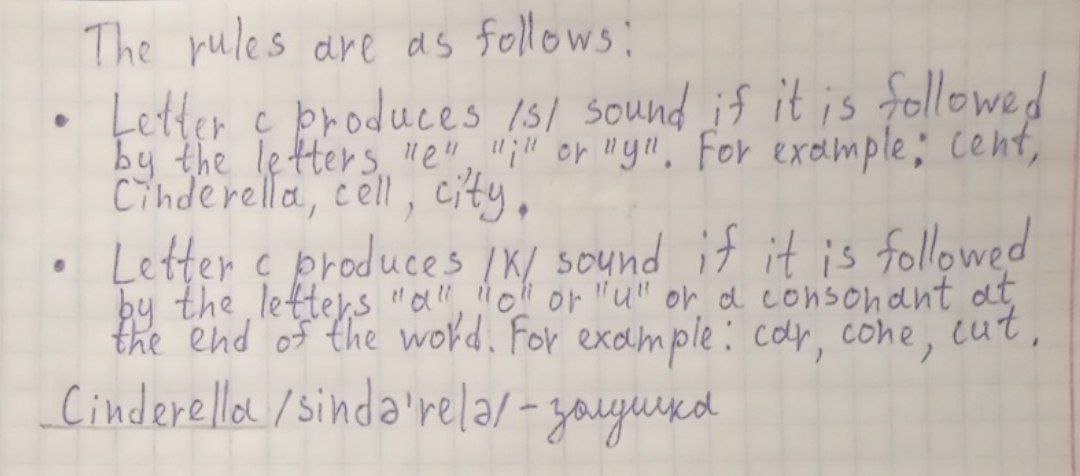 The rules are as follows:
• Letter c produces /s/ sound if it is followed
by the letters "e", "i" or "y". For example: cent,
Cinderella, cell, city.
• Letter c produces /K/ sound if it is followed
by the letters "a", "o" or "u" or a consonant at
the end of the word. For example: car, cone, cut.
Cinderella /sində'relə/ - золушка